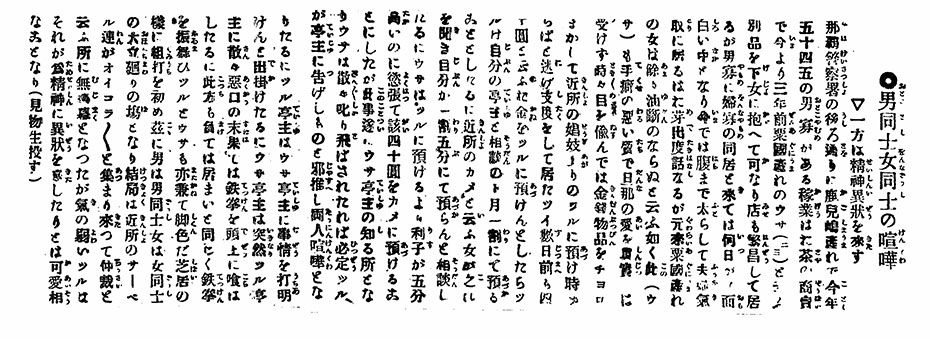 ●男同士女同士の喧嘩
▽一方は精神異狀を來す
那覇警察署の後ろ通りに鹿兒嶋產れで今年
五十四五の男寡がある稼業はお茶の商賣
で今より三年前粟國產れのウサ(三 )と云ふ
別品を下女に抱へて可なり店も繁昌して居
るが男寡に婦寡の同居と來ては何日か 而
白い中となり今では腹まで太らして夫婦氣
取に暮るはお芽出度話なるが元來粟國產れ
の女は餘り油斷のならぬと云ふ如く此(ウ
サ)も手癖の惡い質で旦那の愛を に
受けす時々目を偸んでは金錢物品をチヨロ
まかして近所の娼妓上りのツルに預け時め
らばと逃げ支度をして居たツイ數日前も四
十圓と云ふお金をツルに預けんとしたらツ
ルは自分の亭主と相談の上月一割にて預る
ことにしてるに近所のカメと云ふ女が之れ
を聞き自分か一割五分にて預らんと相談し
たるにウサはツルに預けるより利子が五分
高いのに慾張て該四十圓をカメに預けるこ
とにしたが此事遂にウサ亭主の知る所とな
りウサは散々叱り飛ばされたれば必定ツル
が亭主に告げしものと邪推し両人喧嘩とな
りたるにツル亭主はウサ亭主に事情を打明
けんと出掛けたるにウサ亭主は突然ツル亭
主に散々惡口の末果ては鉄拳を頭上に喰は
したるに此方も負けては居まいと同じく鉄拳
を振舞ひツルとウサも亦兼て脚色だ芝居の
樣に組打を初め茲に男は男同士女は女同士
の大立廻りの塲となり結局は近所のサーベ
ル連がオイコラ〱と集まり來つて仲裁と
云ふ所に無事となつたが氣の弱いツルは
それが爲精神に異狀を來したりとは可愛相
なことなり(見物生投す)